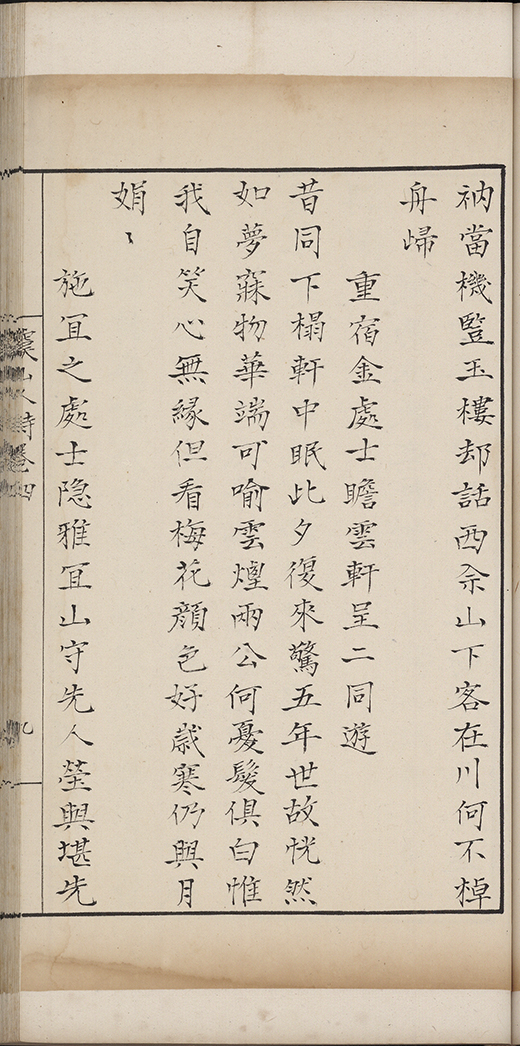 衲當機豎玉樓却話西佘山下客在川何不棹
舟歸
重宿金處士瞻雲軒呈二同遊
昔同下榻軒中眠此夕復來驚五年世故恍然
如夢寐物華端可喻雲煙兩公何憂髮俱白惟
我自笑心無緣但看梅花顏色好歲寒仍與月
娟〻
施宜之處士隐雅宜山守先人塋與堪先
山人詩卷四
九